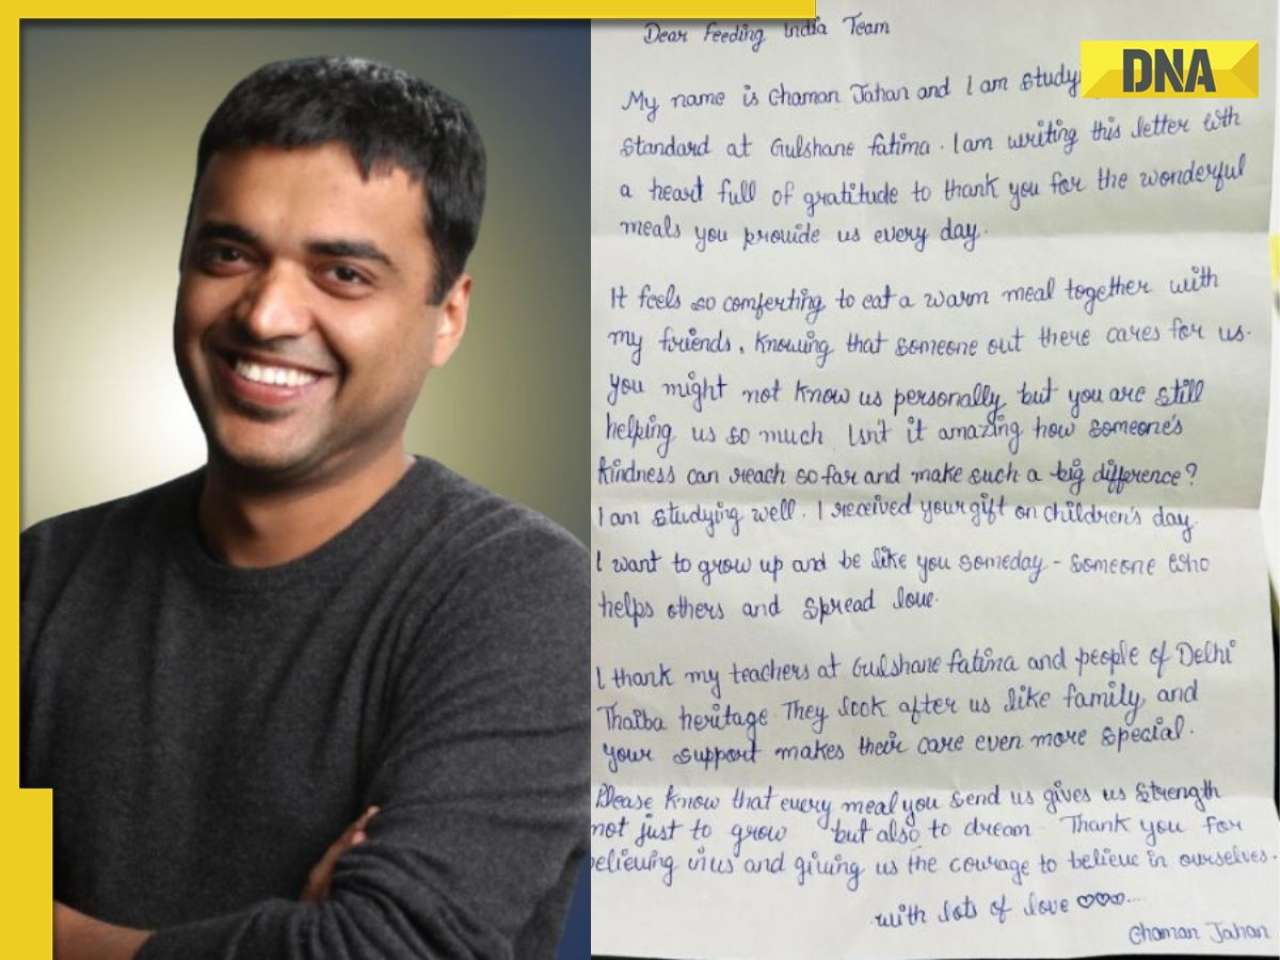 DNA
Dear Feeding India Team
My name is Chaman Jahan and I am study
Standard at Gulshane Fatima. I am writing this letter with
a heart full of gratitude to thank you for the wonderful
meals you provide us every day.
It feels so comferting to eat a warm meal together with
my friends, knowing that someone out there cares for us.
you might not know us personally but you are still
helping us so much Isn't it amazing how someone's
kindness can reach so far and make such a big difference?
I am studying well. I received your gift on children's day
I want to grow up and be like you someday - someone who
helps others and spread love.
I thank my teachers at Gulshane Fatima and people of Delhi
Thaiba heritage They look after us like family, and
your support makes their care even more special.
Please know that every meal you send us gives us strength
not just to grow but also to dream Thank you for
believing in us and giving us the courage to believe in ourselves.
with lots of love ♡♡♡...
Chaman Jahan